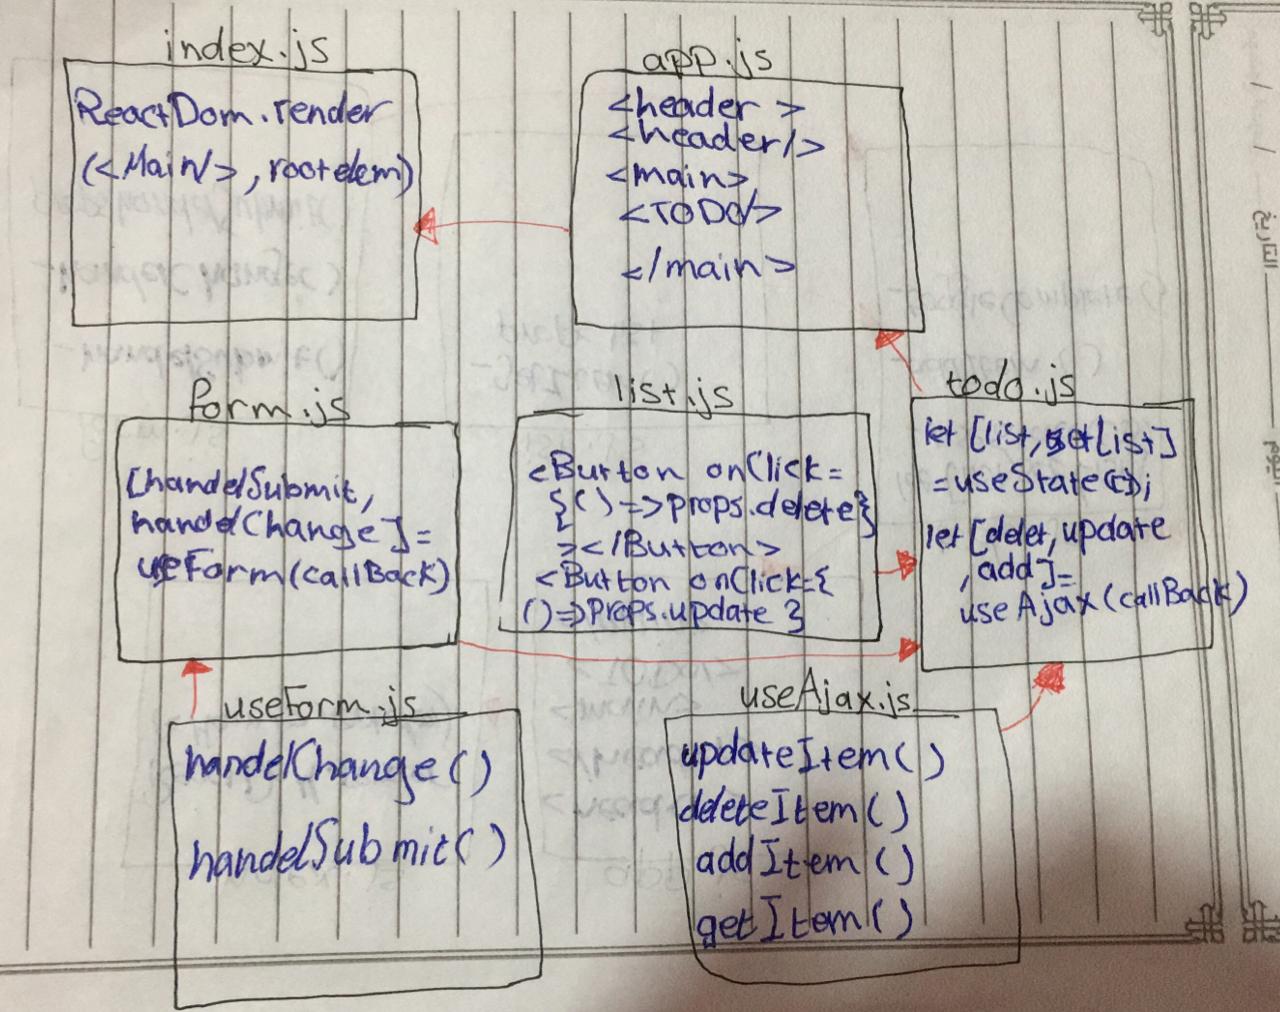 index.js
ReactDom.render
(<Main/>, rootelem)
app.js
<header >
<header/>
<main>
<TODO/>
</main>
form.js
[handelSubmit,
handelChange]=
useForm(callBack)
list.js
<Button onClick=
{()=>props.delete}
></Button>
<Button onClick={
()=>Props.update }
todo.js
let [list, setList]
=useState([]);
let [delet, update
,add]=
useAjax(callBack)
useForm.js
handelChange()
handelSubmit()
useAjax.js
updateItem()
deleteItem()
addItem()
getItem()
التاريخ